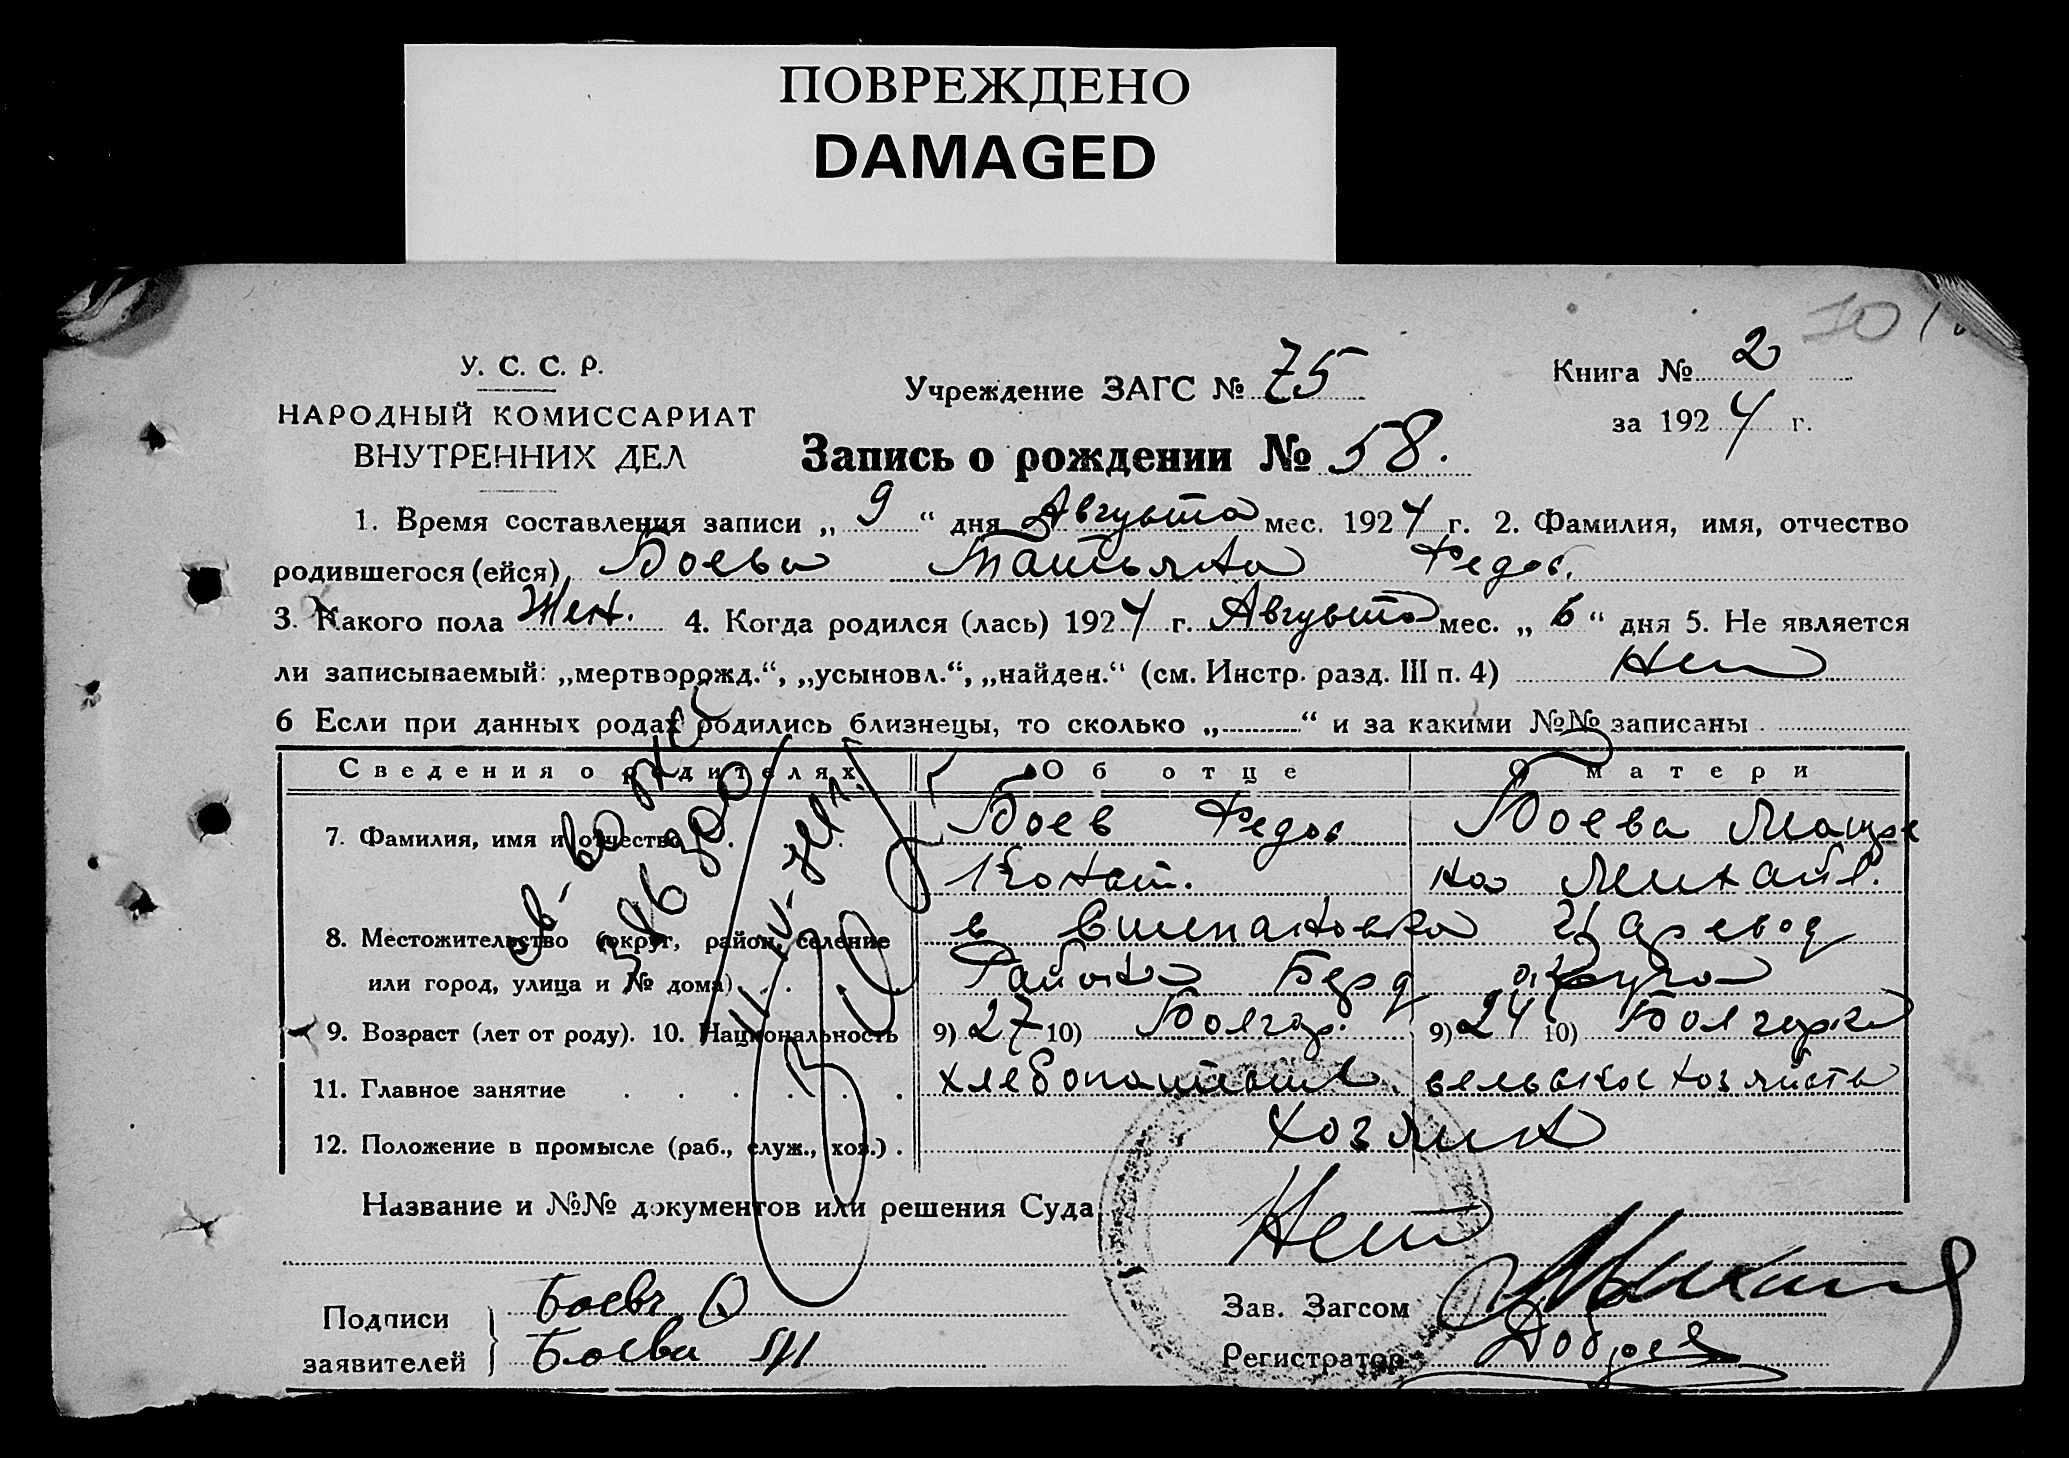 ПОВРЕЖДЕНО
DAMAGED
10
У. С. С. Р.
НАРОДНЫЙ КОМИССАРИАТ
ВНУТРЕННИХ ДЕЛ
Учреждение ЗАГС № 75
Книга № 2
за 1924 г.
Запись о рождении № 58.
1. Время составления записи „ 9 “ дня Августа мес. 1924 г. 2. Фамилия, имя, отчество
родившегося (ейся) Боева Татьяна Федос.
3. Какого пола Жен. 4. Когда родился (лась) 1924 г. Августа мес. „ 6 “ дня 5. Не является
ли записываемый: „мертворожд.“, „усыновл.“, „найден.“ (см. Инстр. разд. III п. 4) Нет
6 Если при данных родах родились близнецы, то сколько „ “ и за какими №№ записаны
Сведения о родителях Об отце О матери
7. Фамилия, имя и отчество Боев Федос Боева Матре
Конст. на Михайл.
8. Местожительство (округ, район, селение в Степановка Царевод
или город, улица и № дома) Района Берд округа
9. Возраст (лет от роду). 10. Национальность 9) 27 10) Болгар. 9) 24 10) Болгарка
11. Главное занятие хлебопашеств сельское хозяйств
12. Положение в промысле (раб., служ., хоз.) хозяин
Название и №№ документов или решения Суда Нет
Подписи заявителей Боев
Боева М
Зав. Загсом
Регистратор